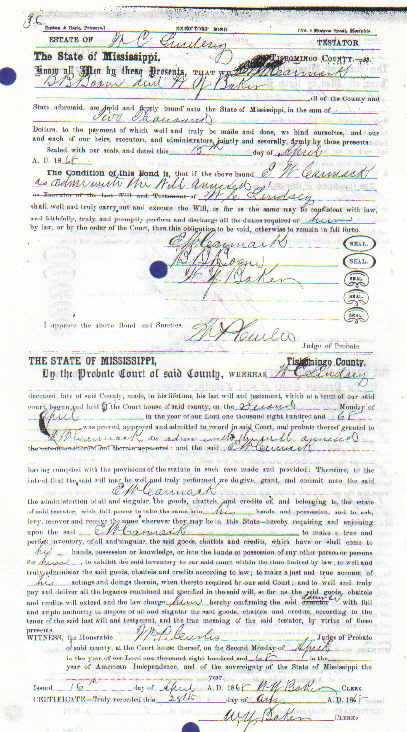 36
EXECUTORS' BOND.
ESTATE OF W C Lindsey TESTATOR
The State of Mississippi, TISHOMINGO COUNTY, ss.
Know all Men by these Presents, THAT WE E W Carmack
and W Y Baker
all of the County and
State aforesaid, are held and firmly bound unto the State of Mississippi, in the sum of
Two Thousand
Dollars, to the payment of which well and truly be made and done, we bind ourselves, and our
and each of our heirs, executors, and administrators, jointly and severally, firmly by these presents:
Sealed with our seals, and dated this day of April
A. D. 1868
The Condition of this Bond is, that if the above bound E W Carmack
as admr with the Will annexed
Executor of the last Will and Testament of W C Lindsey
shall well and truly carry out and execute the Will, so far as the same may be consistent with law,
and faithfully, truly, and promptly perform and discharge all the duties required of him
by law, or by the order of the Court, then this obligation to be void, otherwise to remain in full force.
E W Carmack SEAL.
SEAL.
W Y Baker SEAL.
SEAL.
SEAL.
I approve the above Bond and Sureties.
Judge of Probate
THE STATE OF MISSISSIPPI, Tishomingo County.
By the Probate Court of said County, WHEREAS, W C Lindsey
deceased, late of said County, made, in his lifetime, his last will and testament, which at a term of our said
court, begun and held at the Court house of said county, on the second Monday of
April in the year of our Lord one thousand eight hundred and 68
was proved, approved and admitted to record in said Court, and probate thereof granted to
E W Carmack as admr with the will annexed
the executor thereof and therein appointed: and the said E W Carmack
having complied with the provisions of the statute in such case made and provided: Therefore, to the
intend that the said will may be well and truly performed we do give, grant, and commit unto the said
E W Carmack
the administration of all and singular, the goods, chattels, and credits of, and belonging to, the estate
of said testator, with full power to take the same into his hands and possession, and to ask,
levy, recover and receive the same wherever they may be in this State hereby requiring and enjoining
upon the said E W Carmack to make a true and
perfect inventory, of all and singular, the said goods, chattels and credits, which have or shall come to
his hands, possession or knowledge, or into the hands or possession of any other person or persons
for him, to exhibit the said inventory to our said court within the time limited by law; to well and
truly administer the said goods, chattels and credits according to law; to make a just and true account of
his actings and doings therein, when thereto required by our said Court; and to well and truly
pay and deliver all the legacies contained and specified in the said will, so far as the said goods, chattels
and credits will extend and the law charge him hereby confirming the said executor with full
and ample authority to dispose of all and singular the said goods, chattels and credits, according to the
tenor of the said last will and testament, and the true meaning of the said testator, by virtue of these
presents.
WITNESS, the Honorable Judge of Probate
of said county, at the Court house thereof, on the Second Monday of April
in the year of our Lord one thousand eight hundred and 68 in the
year of American Independence, and of the sovereignty of the State of Mississippi the
year.
Issued 16th day of April A. D. 1868 W Y Baker CLERK
CERTIFICATE—Truly recorded this day of A.D. 1868
W Y Baker (CLERK)